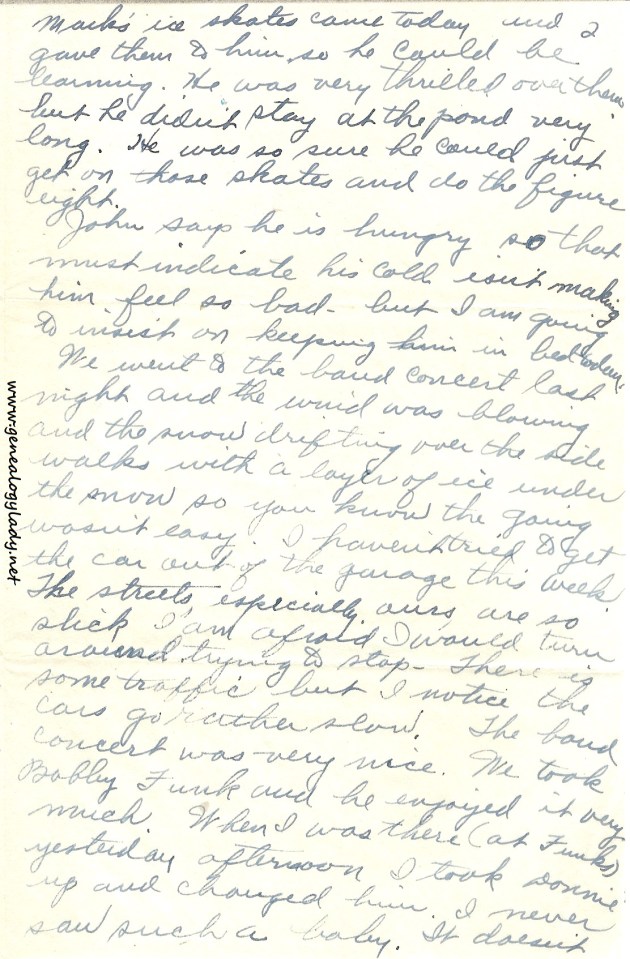 Mark's ice skates came today and 2
gave them to him so he could be
learning. He was very thrilled over them
but he didn't stay at the pond very
long. He was so sure he could just
get on those skates and do the figure
eight.
John says he is hungry so that
must indicate his cold isn't making
him feel so bad - but I am going
to insist on keeping him in bed today.
We went to the band concert last
night and the wind was blowing
and the snow drifting over the side
walks with a layer of ice under
the snow so you know the going
wasn't easy. I haven't tried to get
the car out of the garage this week
The streets especially ours are so
slick I am afraid I would turn
around trying to stop - There is
some traffic but I notice the
cars go rather slow. The band
concert was very nice. We took
Bobby Funk and he enjoyed it very
much. When I was there (at Funks)
yesterday afternoon I took Donnie
up and changed him. I never
saw such a baby. It doesn't
www.genealogylady.net